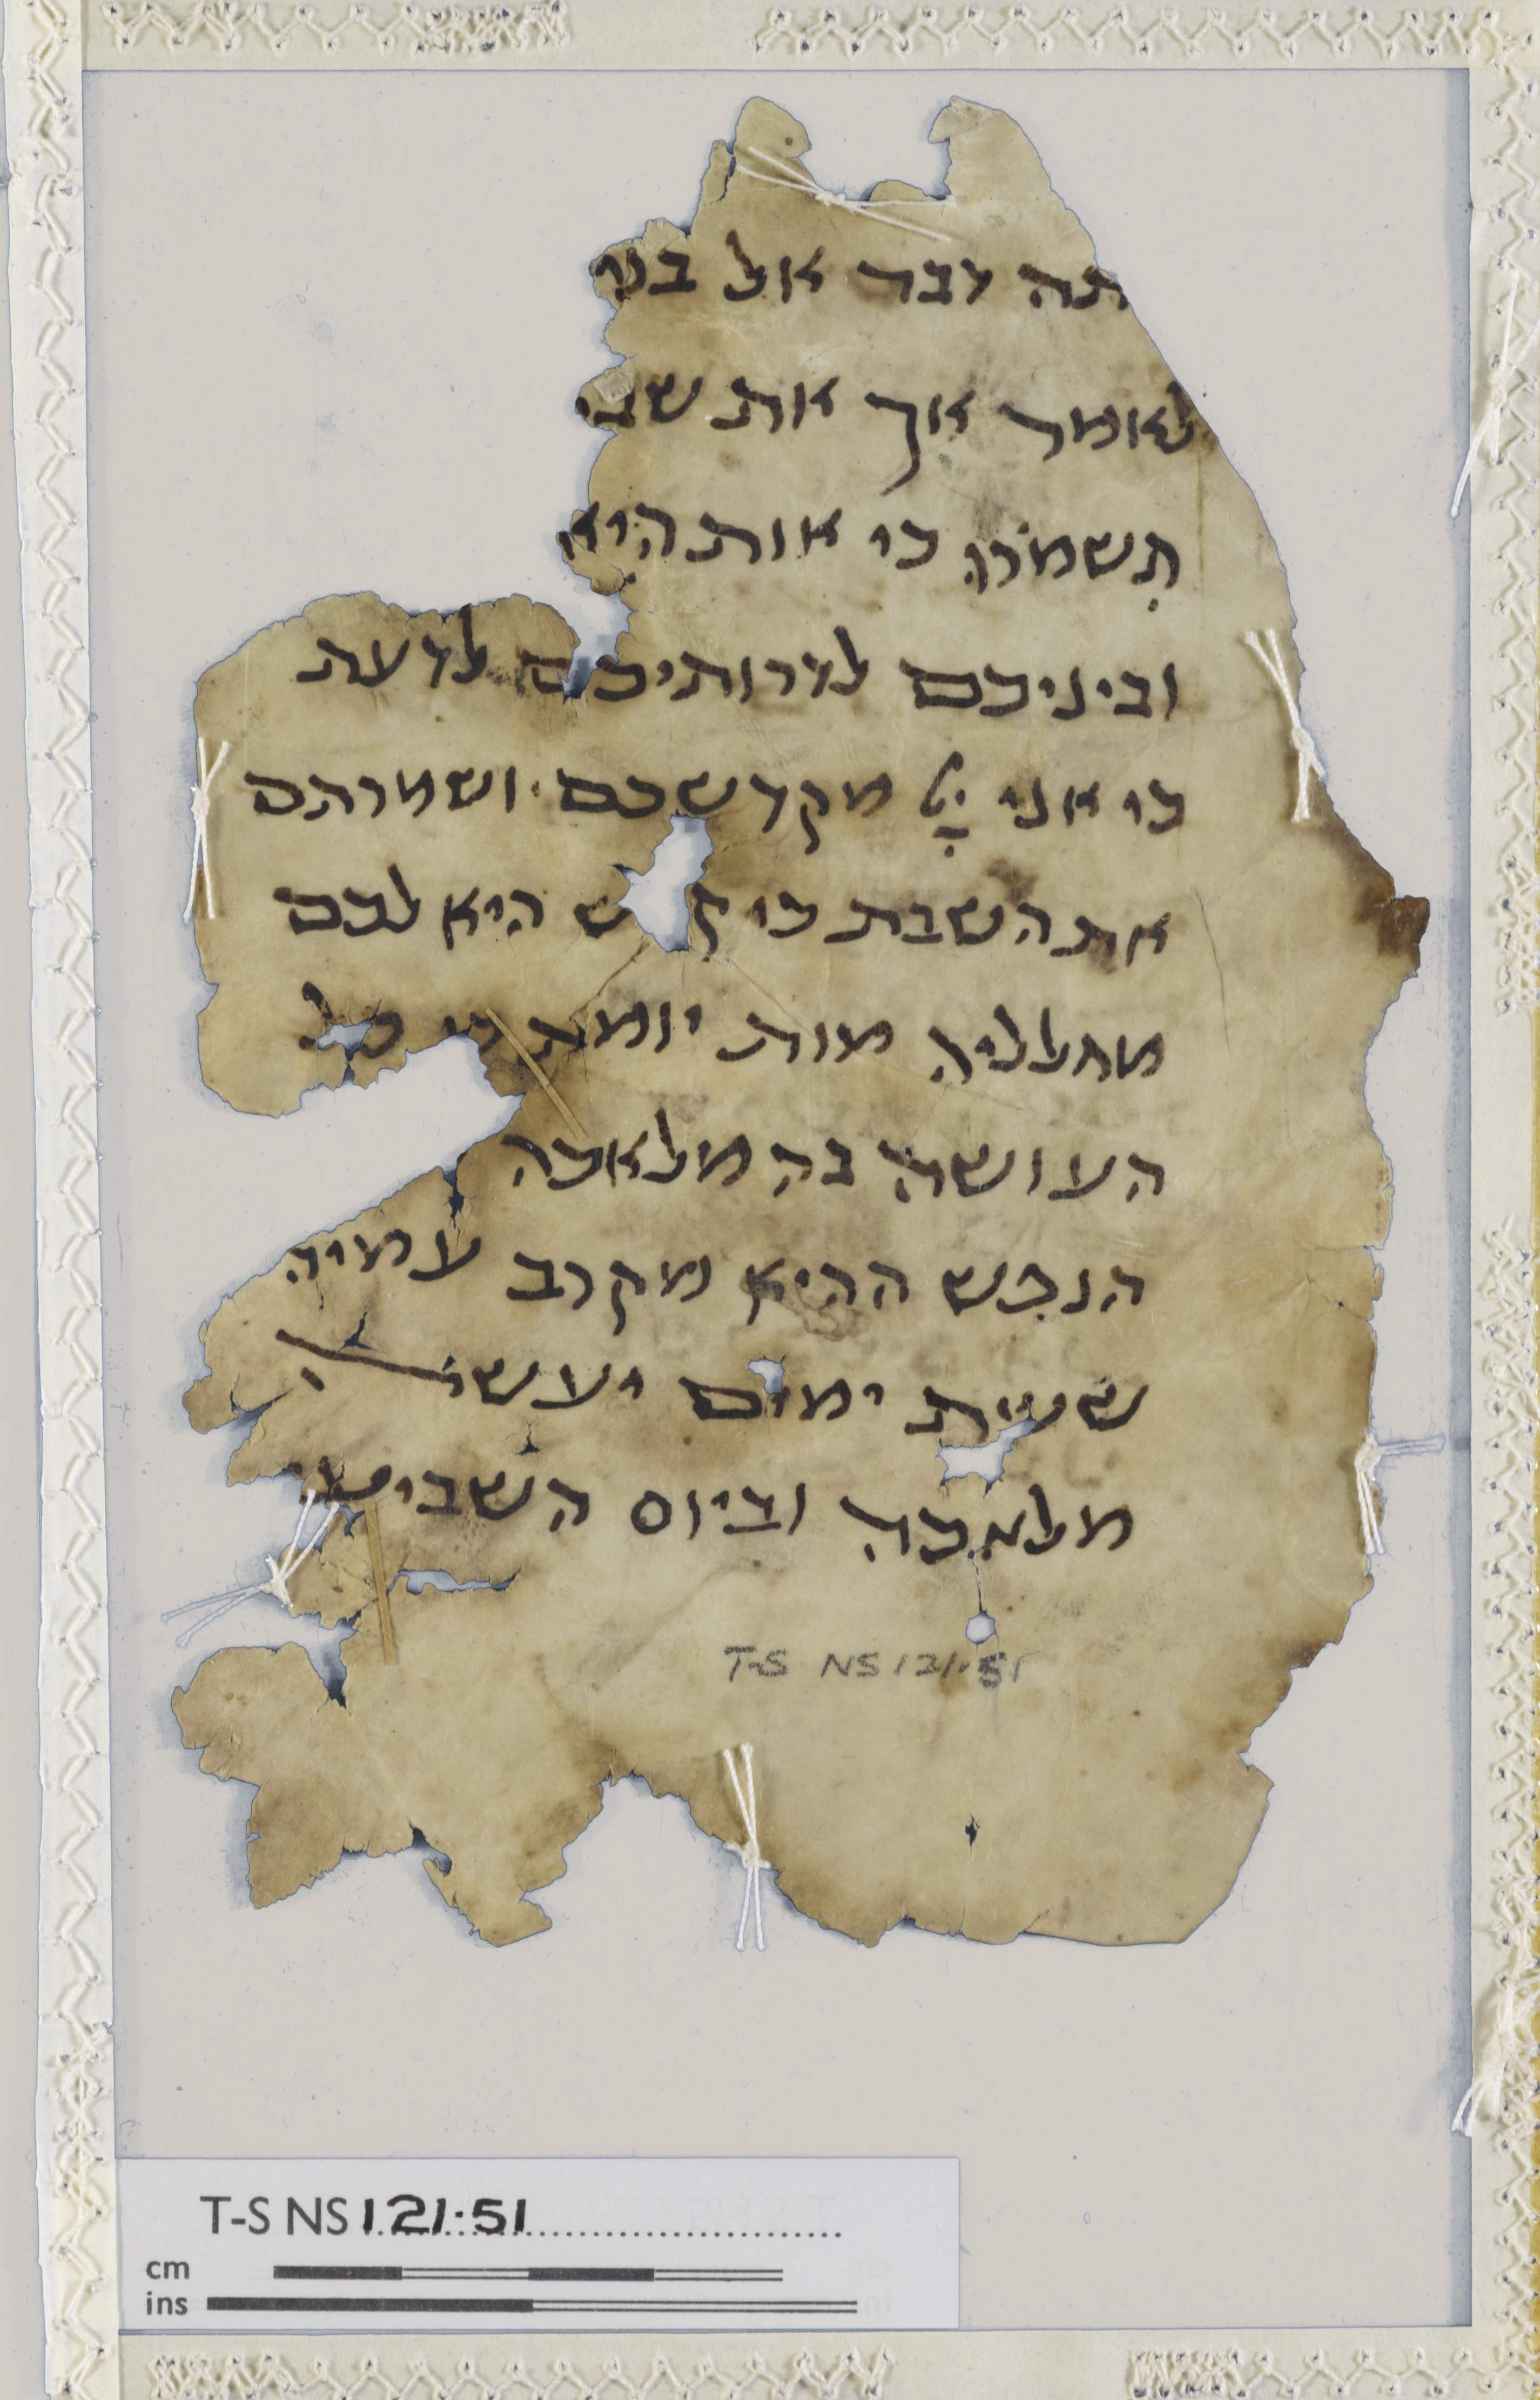 תה דבר אל בני
לאמר אך את שב
תשמרו כי אות היא
וביניכם לדרותיכם לדעת
כי אני מקדשכם ושמרתם
את השבת כי ק ש היא לכם
מחלליה מות יומת כי כל
העושה בה מלאכה
הנפש ההיא מקרב עמיה
ששת ימים יעשה
מלאכה וביום השביעי
T-S NS 121.51
T-S NS 121.51
cm
ins